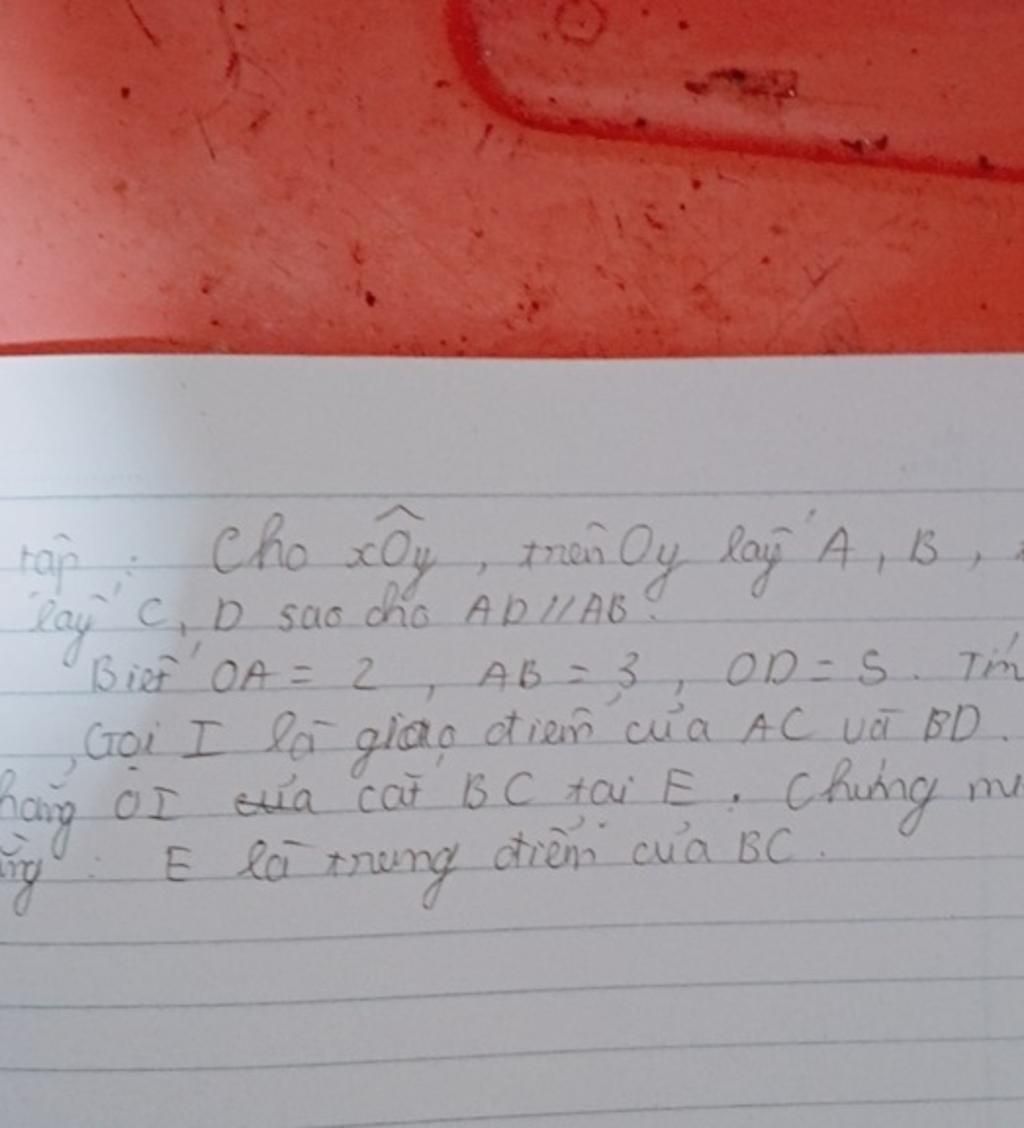 tập : Cho xÔy, trên Oy lấy A, B,
lấy C, D sao cho AD//AB.
Biết OA = 2, AB = 3, OD = 5. Tín
Gọi I là giao điểm của AC và BD.
hẳng OI của cắt BC tại E. Chứng mi
ằng : E là trung điểm của BC.